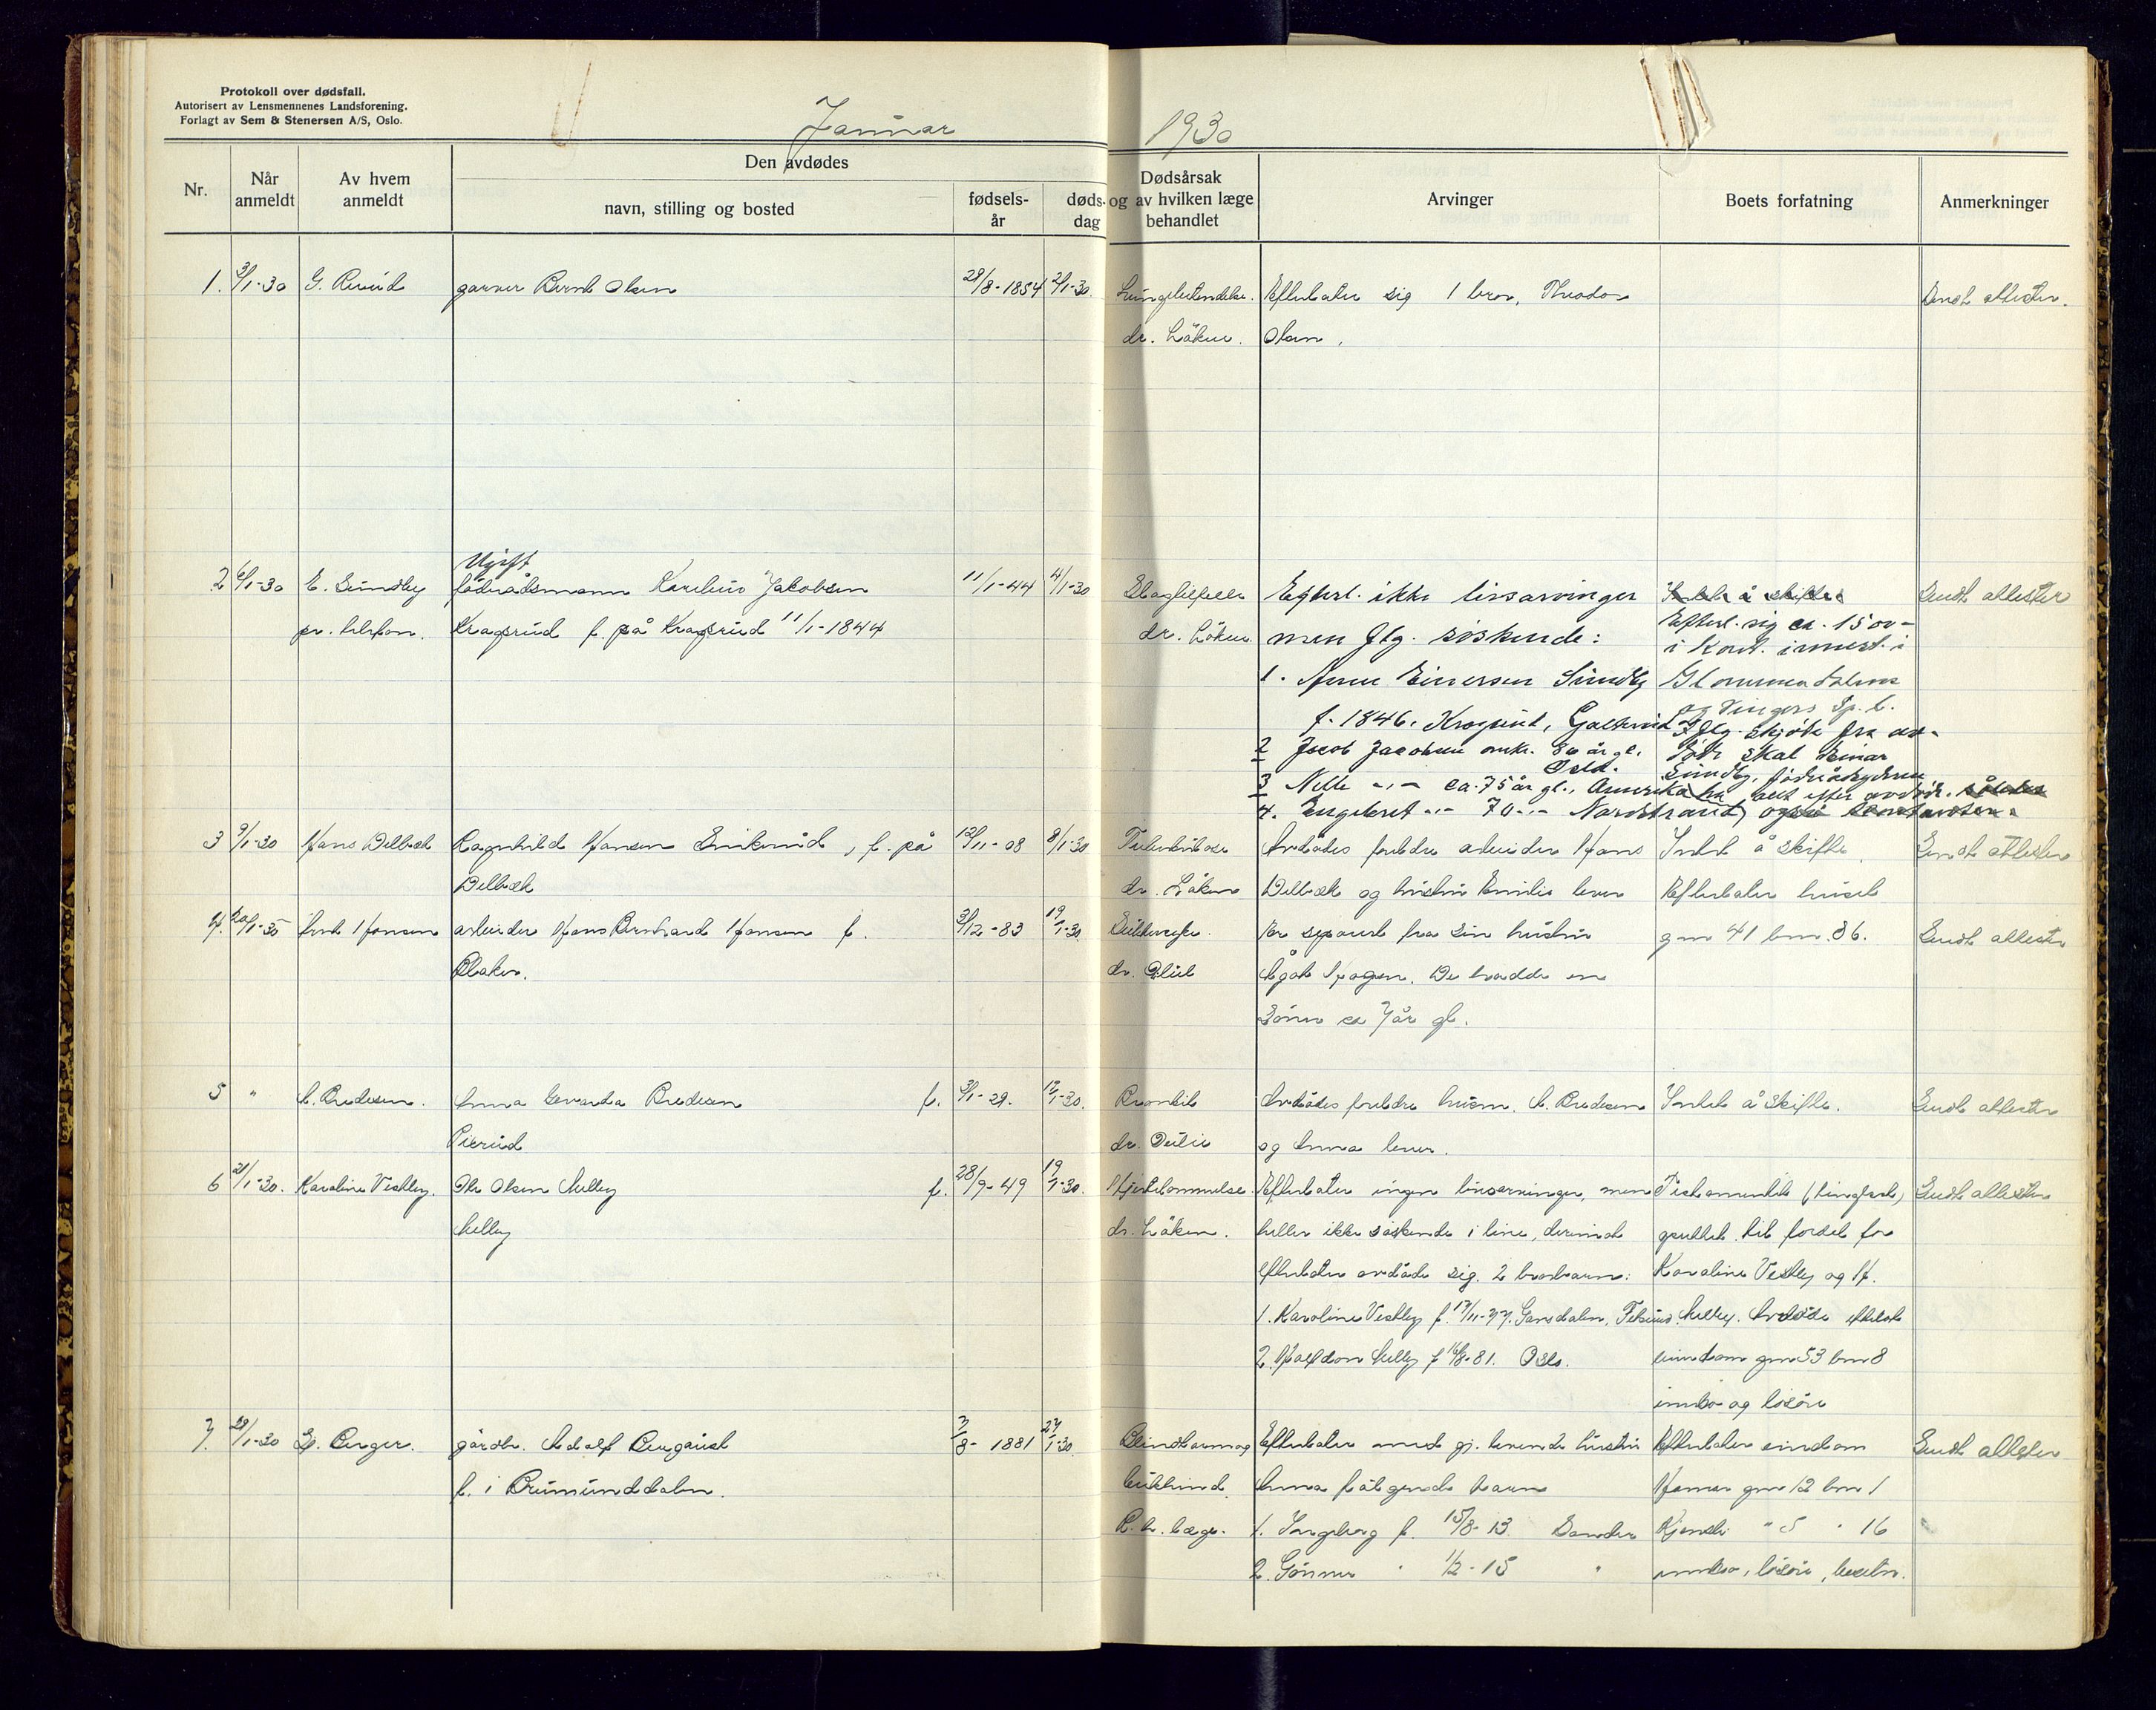 Protokoll over dødsfall.
Autorisert av Lensmennenes Landsforening.
Forlagt av Sem & Stenersen A/S, Oslo.
Januar 1930
Nr.
Når anmeldt
Av hvem anmeldt
Den avdødes
navn, stilling og bosted
fødsels-år
døds-dag
Dødsårsak og av hvilken læge behandlet
Arvinger
Boets forfatning
Anmerkninger
1. 3/1-30 G. garver Bernt Olsen 28/8-1854 2/1-30 Lungebetendelse. Efterlater sig 1 bror, Theodor Sendt attester.
dr. Løken. Olsen.
Ugift
2 6/1-30 E. Sundby føderådsmann Karelius Jakobsen 11/1-44 4/1-30 Slagtilfelle Efterl. ikke livsarvinger Intet å skifte Sendt attester
pr. telefon. Kragsrud f. på Kragsrud 11/1-1844 dr. Løken men flg. søskende: Efterl. sig ca. 1500-
i kont. innest. i
1. Anne Einersen Sundby Glommendalens
f. 1846. Kragsrud, og Vingers Sp.b.
2 Jacob Jacobsen omkr. 80 år gl. Oslo. Iflg. skjøte fra av-
døde skal Einar
3 Nelle -"- ca. 75 år gl., Amerika Sundby,
ha alt efter avdøde.
4. Engebret -"- 70 -"- Nordstrand, også kontanter.
3 9/1-30 Hans Delbæk Ragnhild Hansen f. på 12/11-08 8/1-30 Tuberkulose Avdødes foreldre arbeider Hans Intet å skifte Sendt attester
Delbæk dr. Løken Delbæk og hustru Emilie lever Efterlater huset
4. 20/1-30 Hansen arbeider Hans Bernhard Hansen f. 3/12-83 19/1-30 dr. Er separert fra sin hustru gnr 41 bnr. 36. Sendt attester
Blaker. Ågot Hagen. De hadde en
sønn ca 7 år gl.
5 " A. Bredesen. Anna Gerarda Bredesen f. 3/1-29. 17/1-30. Bronkit Avdødes foreldre husm. A. Bredesen Intet å skifte. Sendt attester
dr. og Anna lever.
6 21/1-30. Karoline Vestby. Ole Olsen Melby f. 28/9-49 19/1-30. Hjertelammelse Efterlater ingen livsarvinger, men Testamentet (tinglæst) Sendt attester
Melby dr. Løken. heller ikke søskende i live, derimot oprettet til fordel for
efterlater avdøde sig 2 brorbarn: Karoline Vestby og H.
1. Karoline Vestby f. 17/11-77. Melby. Avdøde efterlot
2. Halfdan Melby f 16/8-81. Oslo. eiendom gnr 53 bnr 8
innbo og løsøre
7. 28/1-30 gårdbr. Adolf Bergquist 3/8-1881 27/1-30 Blindtarm og Efterlater med gj. levende hustru Efterlater eiendom Sendt attester
f. i Brumunddalen. Anna følgende barn gnr 12 bnr 1
1. Ingeborg f. 15/8-13. Sander " 5 " 16
2. Gunnar " 1/2-15 " innbo, løsøre, besetn.